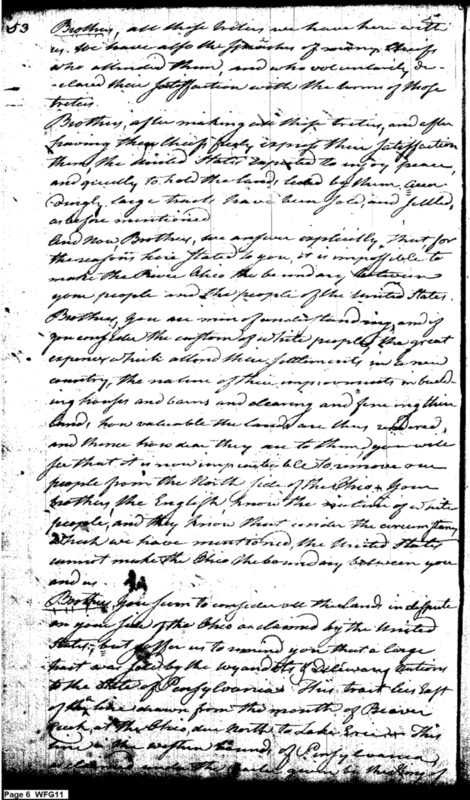 53 Brothers, all these treties we have here with
us. We have also the speeches of many Chiefs
who attended them, and who voluntarily de-
-clared their satisfaction with the terms of those
treties.
Brothers, after making all these treties, and after
hearing the Chiefs freely express their satisfaction
them, the United States expected to enjoy peace,
and quietly to hold the lands ceded by them. Accor
dingly, large tracts have been sold, and settled,
as before mentioned
And Now, Brothers, we answer explicitly, that for
the reasons here stated to you, it is impossible to
make the River Ohio the boundary between
your people and the people of the United States.
Brothers, You are men of understanding, and if
you consider the custom of white people, the great
expences which attend their settlements in a new
country, the nature of their improvements in build-
ing houses and barns and clearing and fencing their
land, how valuable the lands are thus rendered,
and thence how dear they are to them, you will
see that it is now impracticable to remove our
people from the North side of the Ohio. Your
brothers, the English know the nature of white
people, and they know that under the circumstances
which we have mentioned, the United States
cannot make the Ohio the boundary between you
and us.
Brothers, You seem to consider all the lands in dispute
on your side of the Ohio as claimed by the United
States; but suffer us to remind you that a large
part was sold by the Wyandot & Delaware Nations
to the State of Pensylvania. This tract lies East
of the line drawn from the mouth of Beaver
Creek, at the Ohio, due North to Lake Erie. This
line is the western bound of Pensylvania,
Page 6 WFG11